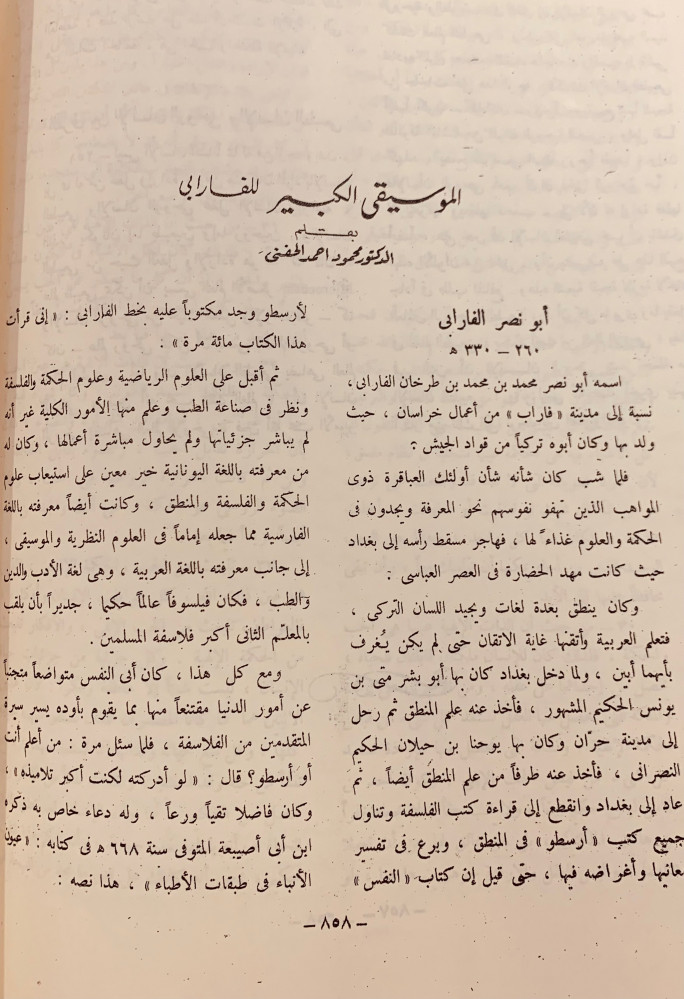 الموسيقى الكبير للفارابى
بقلم
الدكتور محمود احمد الحفنى
أبو نصر الفارابى
٢٦٠ – ٣٣٠ ه
اسمه أبو نصر محمد بن محمد بن طرخان الفارابى ،
نسبة إلى مدينة « فاراب » من أعمال خراسان ، حيث
ولد بها وكان أبوه تركياً من قواد الجيش .
فلما شب كان شأنه شأن أولئك العباقرة ذوى
المواهب الذين تهفو نفوسهم نحو المعرفة ويجدون فى
الحكمة والعلوم غذاء ً لها ، فهاجر مسقط رأسه إلى بغداد
حيث كانت مهد الحضارة فى العصر العباسى :
وكان ينطق بعدة لغات ويجيد اللسان التركى ،
فتعلم العربية وأتقنها غاية الاتقان حتى لم يكن يُعرف
بأيهما أبين ، ولما دخل بغداد كان بها أبو بشر متى بن
يونس الحكيم المشهور ، فأخذ عنه علم المنطق ثم رحل
إلى مدينة حرّان وكان بها يوحنا بن حيلان الحكيم
النصرانى ، فأخذ عنه طرفاً من علم المنطق أيضاً ، ثم
عاد إلى بغداد وانقطع إلى قراءة كتب الفلسفة وتناول
جميع كتب « أرسطو » فى المنطق ، وبرع فى تفسير
معانيها وأغراضه فيها ، حتى قيل إن كتاب « النفس »
لأرسطو وجد مكتوباً عليه بخط الفارابى : « إنى قرأت
هذا الكتاب مائة مرة » .
ثم أقبل على العلوم الرياضية وعلوم الحكمة والفلسفة
ونظر فى صناعة الطب وعلم منها الأمور الكلية غير أنه
لم يباشر جزئياتها ولم يحاول مباشرة أعمالها ، وكان له
من معرفته باللغة اليونانية خير معين على استيعاب علوم
الحكمة والفلسفة والمنطق ، وكانت أيضاً معرفته باللغة
الفارسية مما جعله إماماً فى العلوم النظرية والموسيقى ،
إلى جانب معرفته باللغة العربية ، وهى لغة الأدب والدين
والطب ، فكان فيلسوفاً عالماً حكيما ، جديراً بأن يلقب
بالمعلّم الثانى أكبر فلاسفة المسلمين .
ومع كل هذا ، كان أبى النفس متواضعاً متجنباً
عن أمور الدنيا مقتنعاً منها بما يقوم بأوده يسير سيرة
المتقدمين من الفلاسفة ، فلما سئل مرة : من أعلم أنت
أو أرسطو؟ قال : « لو أدركته لكنت أكبر تلاميذه » ،
وكان فاضلا تقياً ورعاً ، وله دعاء خاص به ذكره
ابن أبى أصيبعة المتوفى سنة ٦٦٨ ه فى كتابه : « عيون
الأنباء فى طبقات الأطباء » ، هذا نصه :
– ٨٥٨ –